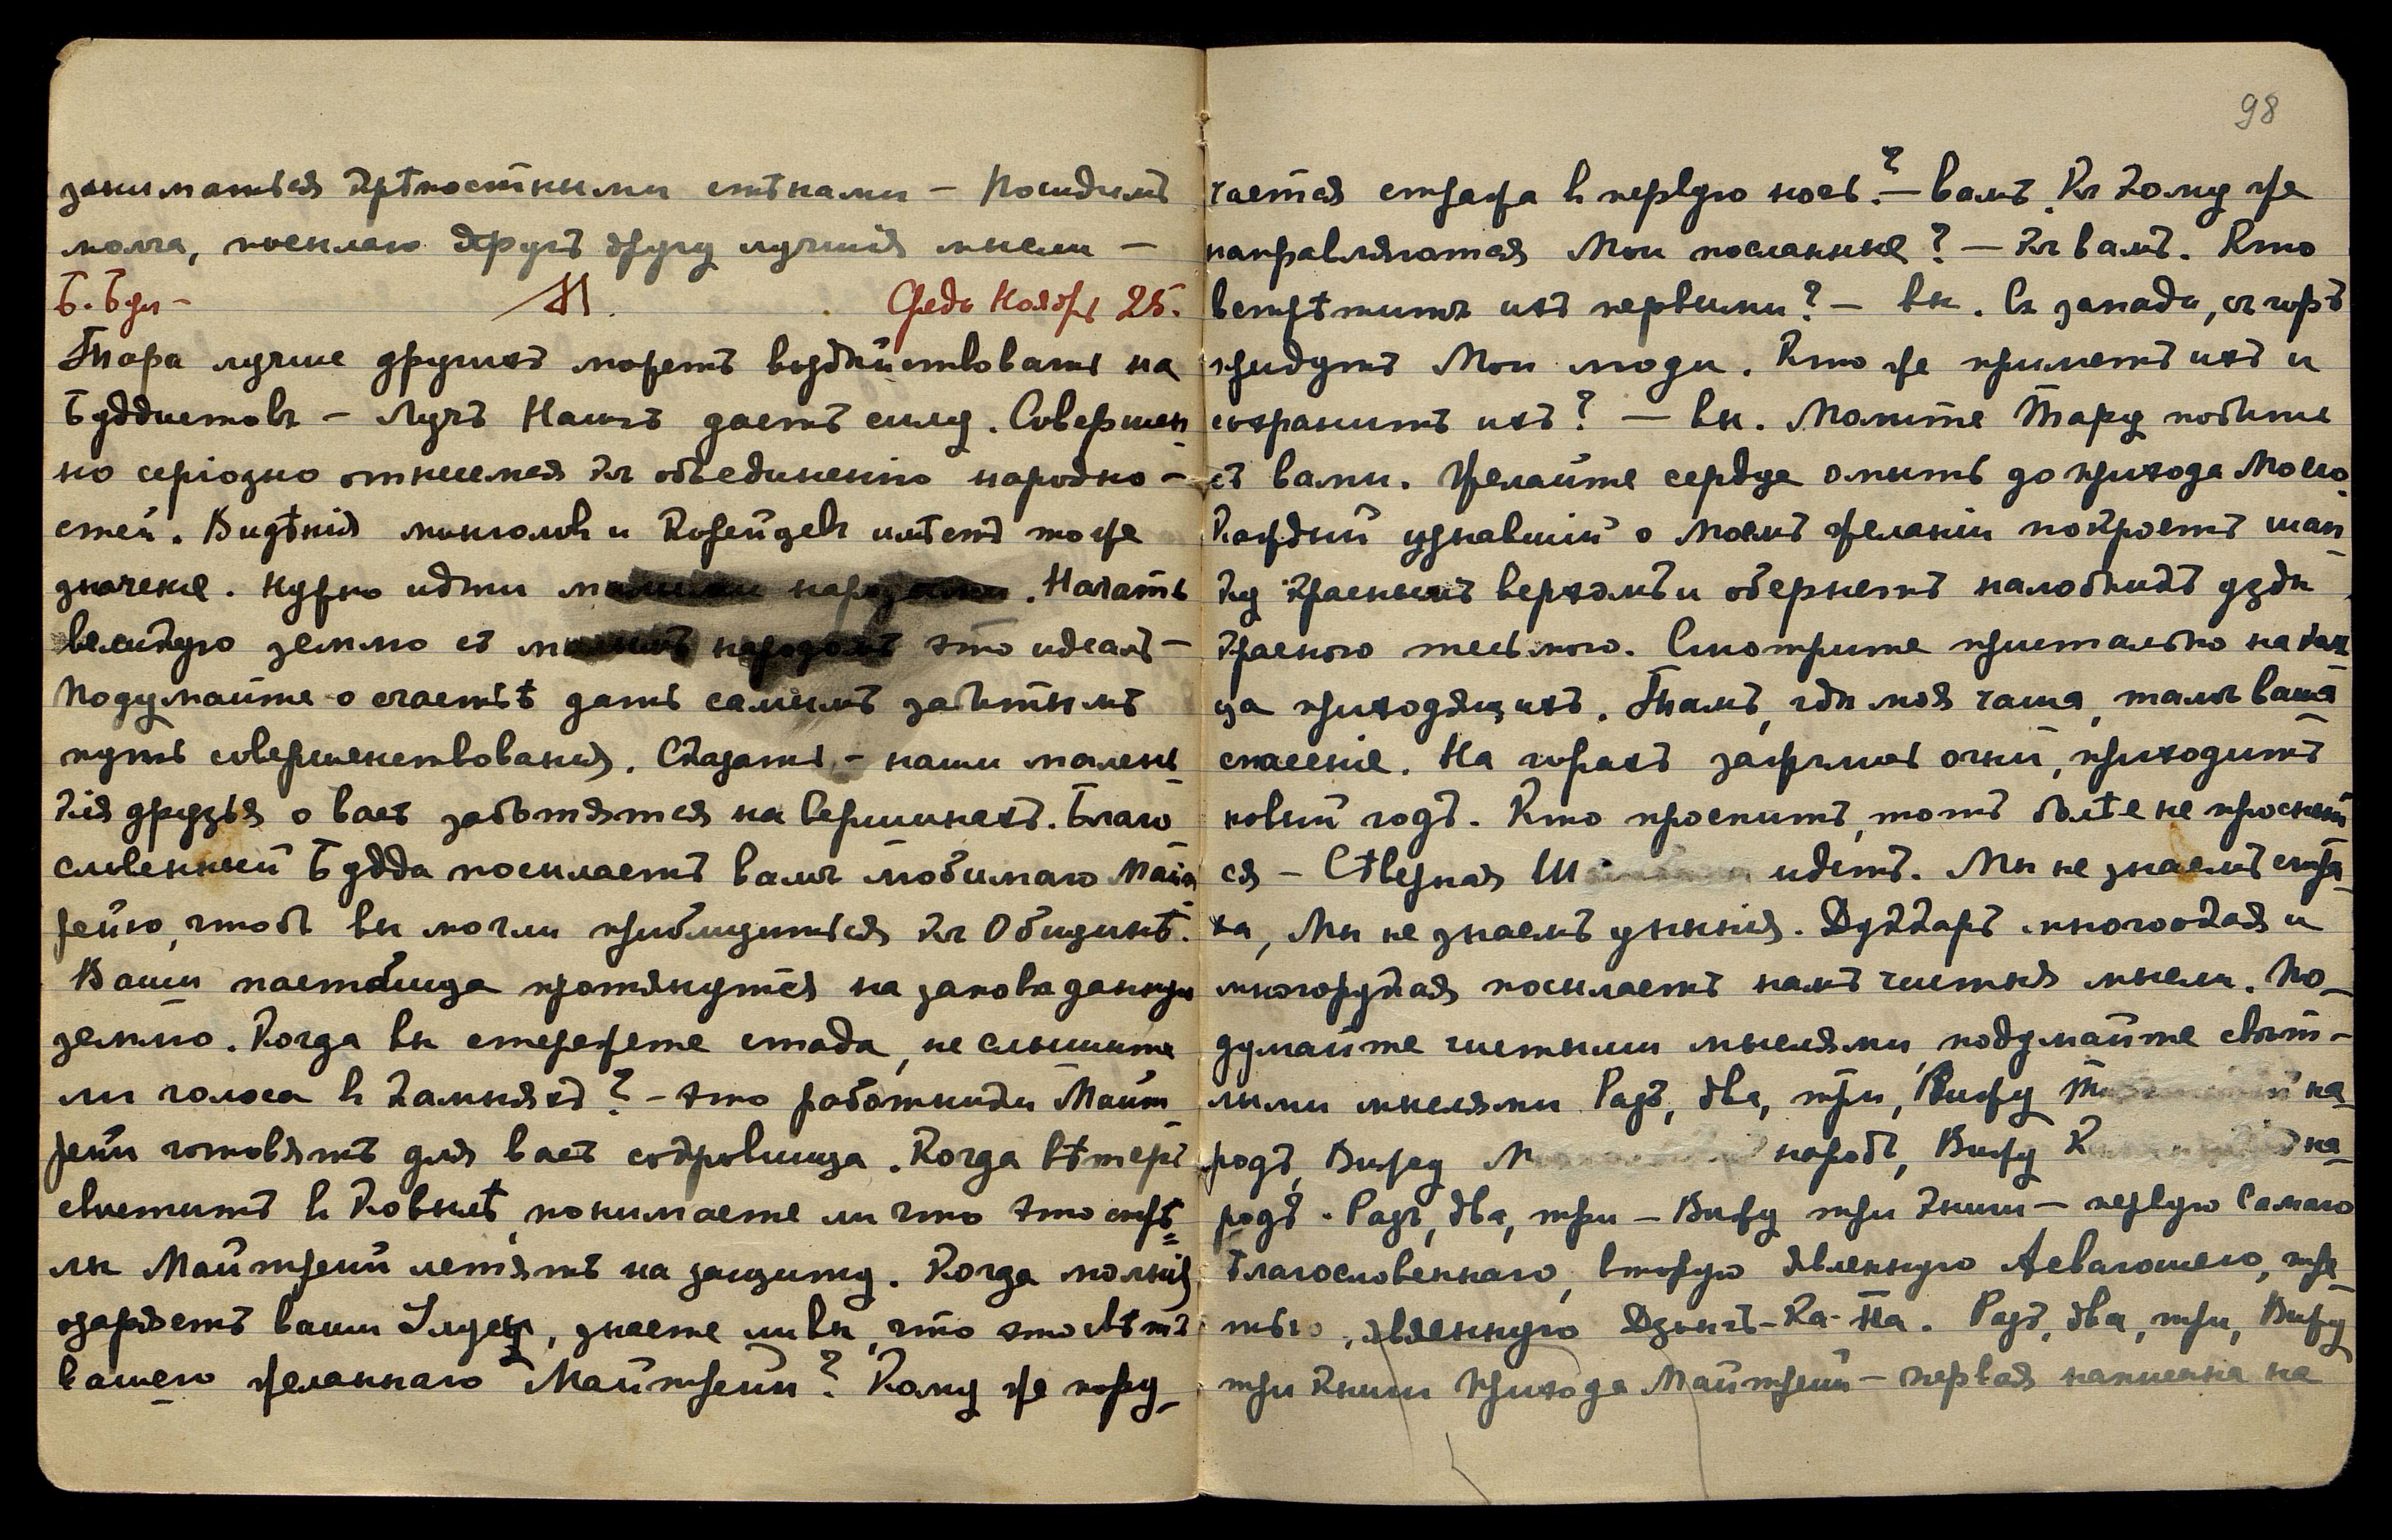 заниматься крѣпостными стѣнами — Посидимъ
молча, посылаю другъ другу лучшія мысли —
Б. Бул — М. Среда Ноябрь 25.
Тара лучше другихъ можетъ воздѣйствовать на
Буддистовъ — Лучъ Нашъ даетъ силу. Совершен-
но серіозно отнесемся къ объединенію народно-
стей. Видѣнія монголовъ и имѣетъ тоже
значеніе. Нужно идти. Начать
великую землю съ это идеалъ —
Подумайте о счастьѣ дать самымъ забытымъ
путь совершенствованія. Сказать — наши малень-
кія друзья о васъ заботятся на вершинахъ. Благо
словенный Будда посылаетъ вамъ любимаго Майт-
рейю, чтобъ вы могли приблизиться къ Общинѣ.
Ваши пастбища протянутся на заповеданную
землю. Когда вы стережете стада, не слышите
ли голоса въ камняхъ? — это работники Майт
рейи готовятъ для васъ сокровища. Когда вѣтеръ
свиститъ въ Ковылѣ, понимаете ли что это стрѣ=
лы Майтрейи летятъ на защиту. Когда молнія
озаряетъ ваши Улусы, знаете ли вы, что это свѣтъ
вашего желаннаго Майтрейи? Кому же пору-
98
чается стража въ первую ночь? — вамъ. Къ кому же
направляются Мои посланные? — Къ вамъ. Кто
встрѣтитъ ихъ первыми? — вы. Съ запада, съ горъ
придутъ Мои люди. Кто же приметъ ихъ и
сохранитъ ихъ? — вы. Молите Тару побыть
съ вами. Желайте сердце омыть до прихода Моего.
Каждый узнавшій о Моемъ желаніи покроетъ шап-
ку краснымъ верхомъ и обернетъ налобникъ узды
красною тесьмою. Смотрите пристально на коль
ца приходящихъ. Тамъ, гдѣ моя чаша, тамъ ваше
спасеніе. На горахъ зажглись огни, приходитъ
новый годъ. Кто проспитъ, тотъ болѣе не проснет
ся — Сѣверная Ш идетъ. Мы не знаемъ стра-
ха, Мы не знаемъ унынія. Дуккаръ многоокая и
многорукая посылаетъ намъ чистыя мысли. По-
думайте чистыми мыслями, подумайте свѣт-
лыми мыслями Разъ, два, три, Вижу на-
родъ, Вижу М народъ, Вижу К на-
родъ. Разъ, два, три — Вижу три книги — первую Самаго
Благословеннаго, вторую явленную Асвагошею, тре
тью, явленную Дзонгъ-Ка-Па. Разъ, два, три, Вижу
три Книги Прихода Майтрейи — первая написана на